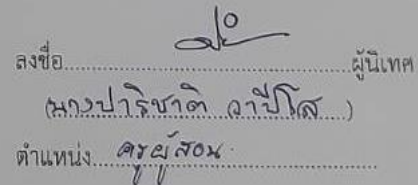 ลงชื่อ........................................ผู้นิเทศ
(นางปาริชาติ วาปีโส)
ตำแหน่ง ครูผู้สอน